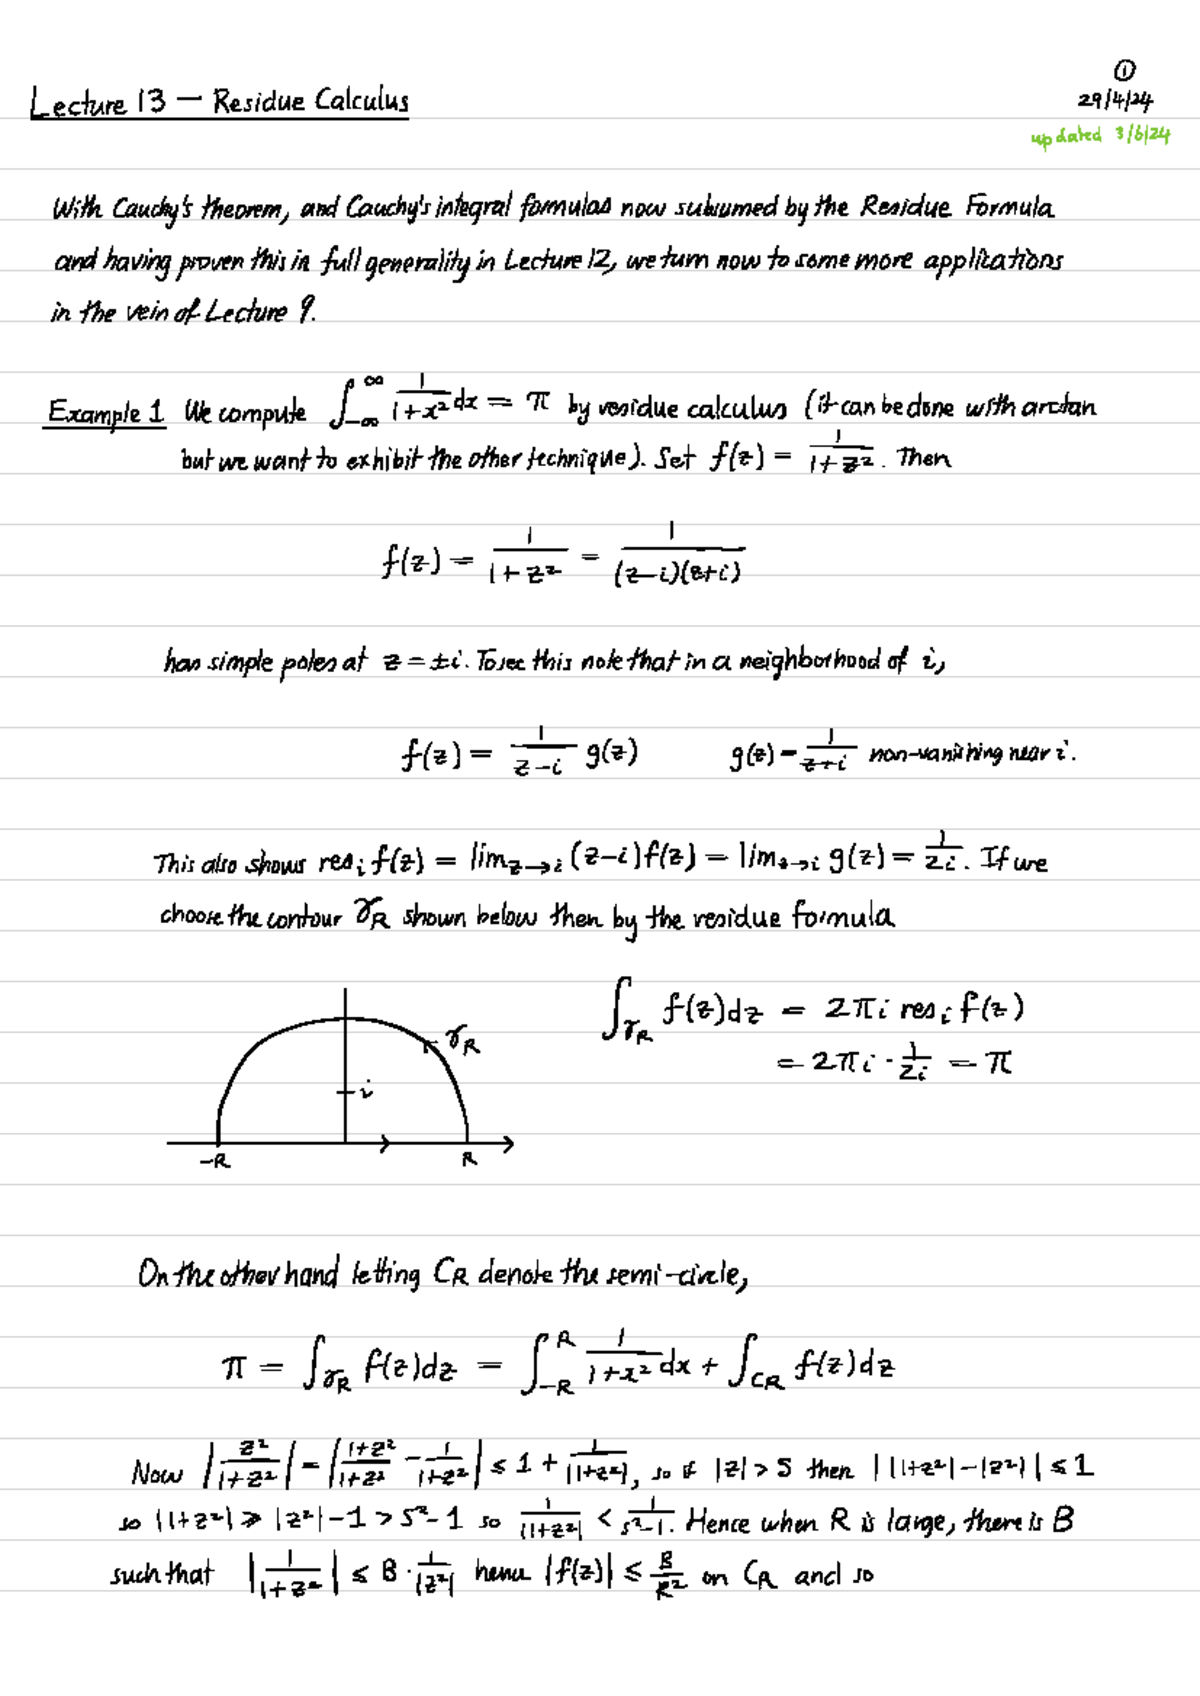 ①
Lecture 13 — Residue Calculus
29/4/24
updated 3/6/24
With Cauchy's theorem, and Cauchy's integral formulas now subsumed by the Residue Formula
and having proven this in full generality in Lecture 12, we turn now to some more applications
in the vein of Lecture 9.
Example 1 We compute ∫_{-∞}^{∞} 1/(1+x²) dx = π by residue calculus (it can be done with arctan
but we want to exhibit the other technique). Set f(z) = 1/(1+z²). Then
f(z) = 1/(1+z²) = 1/((z-i)(z+i))
has simple poles at z = ±i. To see this note that in a neighborhood of i,
f(z) = 1/(z-i) g(z)    g(z) = 1/(z+i) non-vanishing near i.
This also shows res_i f(z) = lim_{z→i} (z-i)f(z) = lim_{z→i} g(z) = 1/2i. If we
choose the contour γ_R shown below then by the residue formula
∫_{γ_R} f(z)dz = 2πi res_i f(z)
= 2πi · 1/2i = π
γ_R
i
-R R
On the other hand letting C_R denote the semi-circle,
π = ∫_{γ_R} f(z)dz = ∫_{-R}^{R} 1/(1+x²) dx + ∫_{C_R} f(z)dz
Now |z²/(1+z²)| = |(1+z²)/(1+z²) - 1/(1+z²)| ≤ 1 + 1/|1+z²|, so if |z| > S then ||1+z²| - |z²|| ≤ 1
so |1+z²| ≥ |z²| - 1 > S² - 1 so 1/|1+z²| < 1/(S²-1). Hence when R is large, there is B
such that |1/(1+z²)| ≤ B · 1/|z²| hence |f(z)| ≤ B/R² on C_R and so